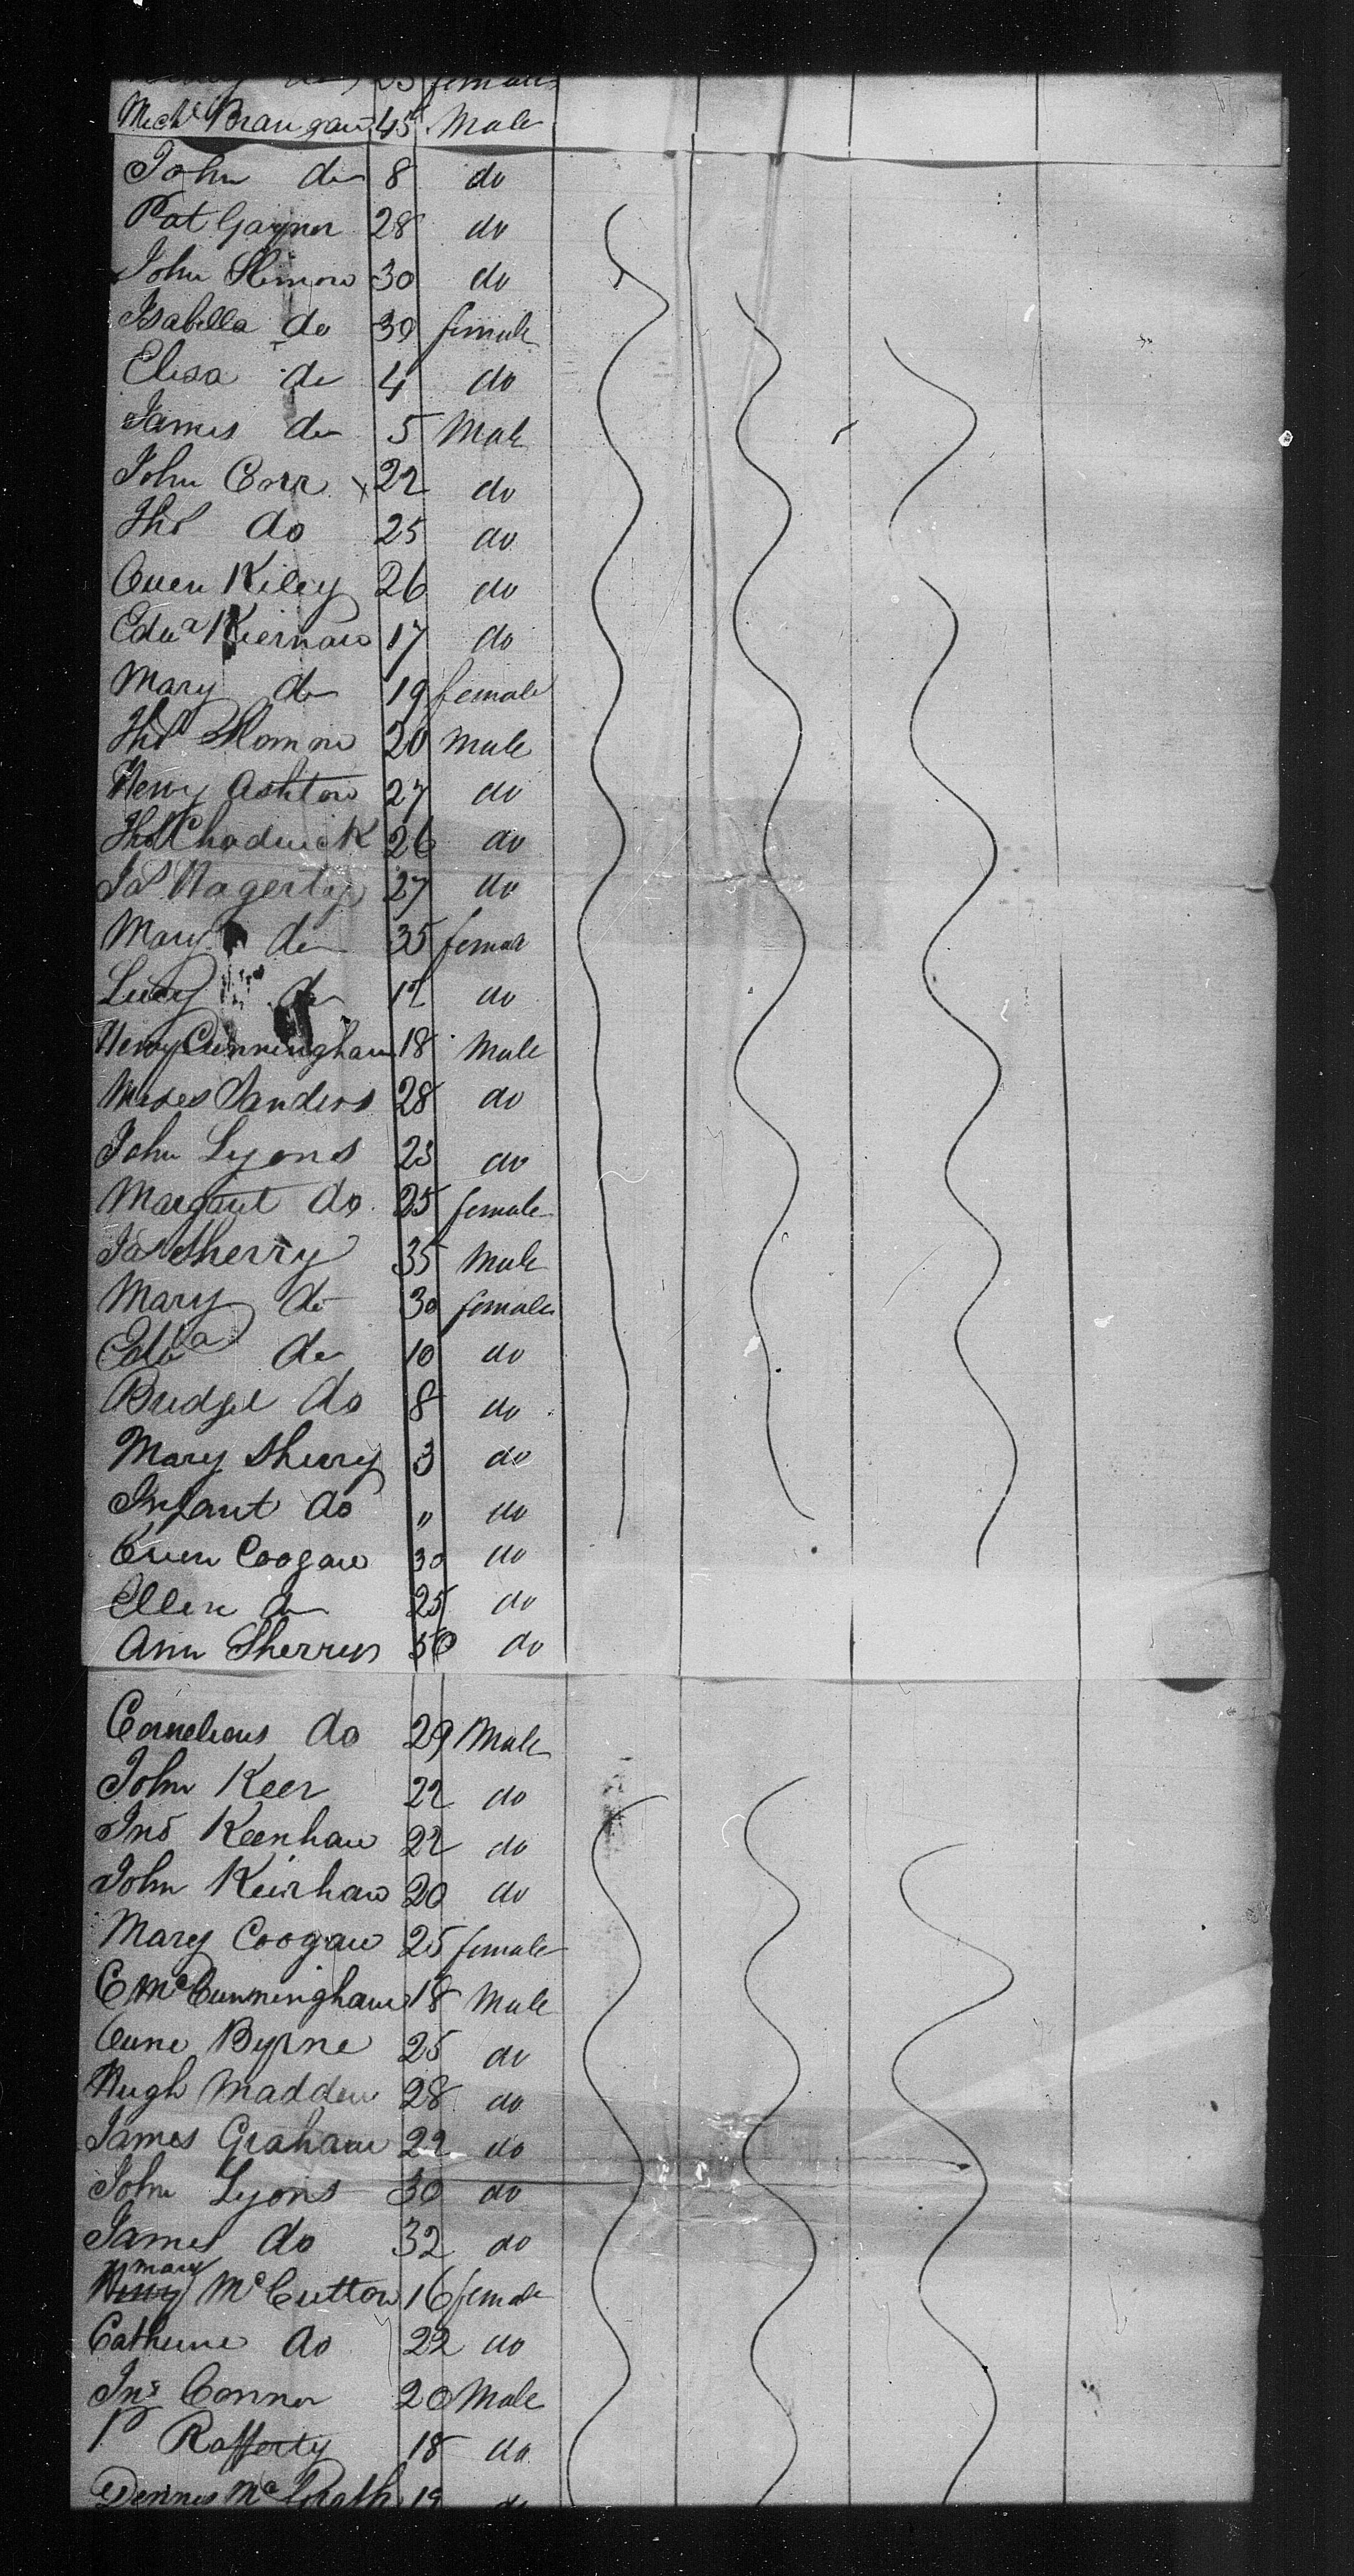 do 23 females
Mich Brangan 45 Male
John do 8 do
Pat Gaynor 28 do
John Slemon 30 do
Isabella do 30 female
Elisa do 4 do
James do 5 Male
John Corr x 22 do
Thos do 25 do
Owen Kiley 26 do
Edwd Kiernan 17 do
Mary do 19 female
Thos 20 Male
Henry Ashton 27 do
Thos Chadwick 26 do
Jas Hagerty 27 do
Mary do 35 femal
Lucy do 12 do
Henry Cunningham 18 Male
Moses Sanders 28 do
John Lyons 23 do
Margaut do 25 female
Jas Sherry 35 Male
Mary do 30 females
Edwd do 10 do
Bridget do 8 do
Mary Sherry 3 do
Infant do " do
Owen Coogan 30 do
Ellen do 25 do
Ann Sherry 50 do
Cornelious do 29 Male
John Keer 22 do
Jno Keenhan 22 do
John Keirhan 20 do
Mary Coogan 25 female
C McCunningham 18 Male
Owne Byrne 25 do
Hugh Madden 28 do
James Graham 22 do
John Lyons 30 do
James do 32 do
Mary
McCutton 16 female
Catherine do 22 do
Jno Connor 20 Male
P Rafferty 18 do
Dennes McGrath 19 do